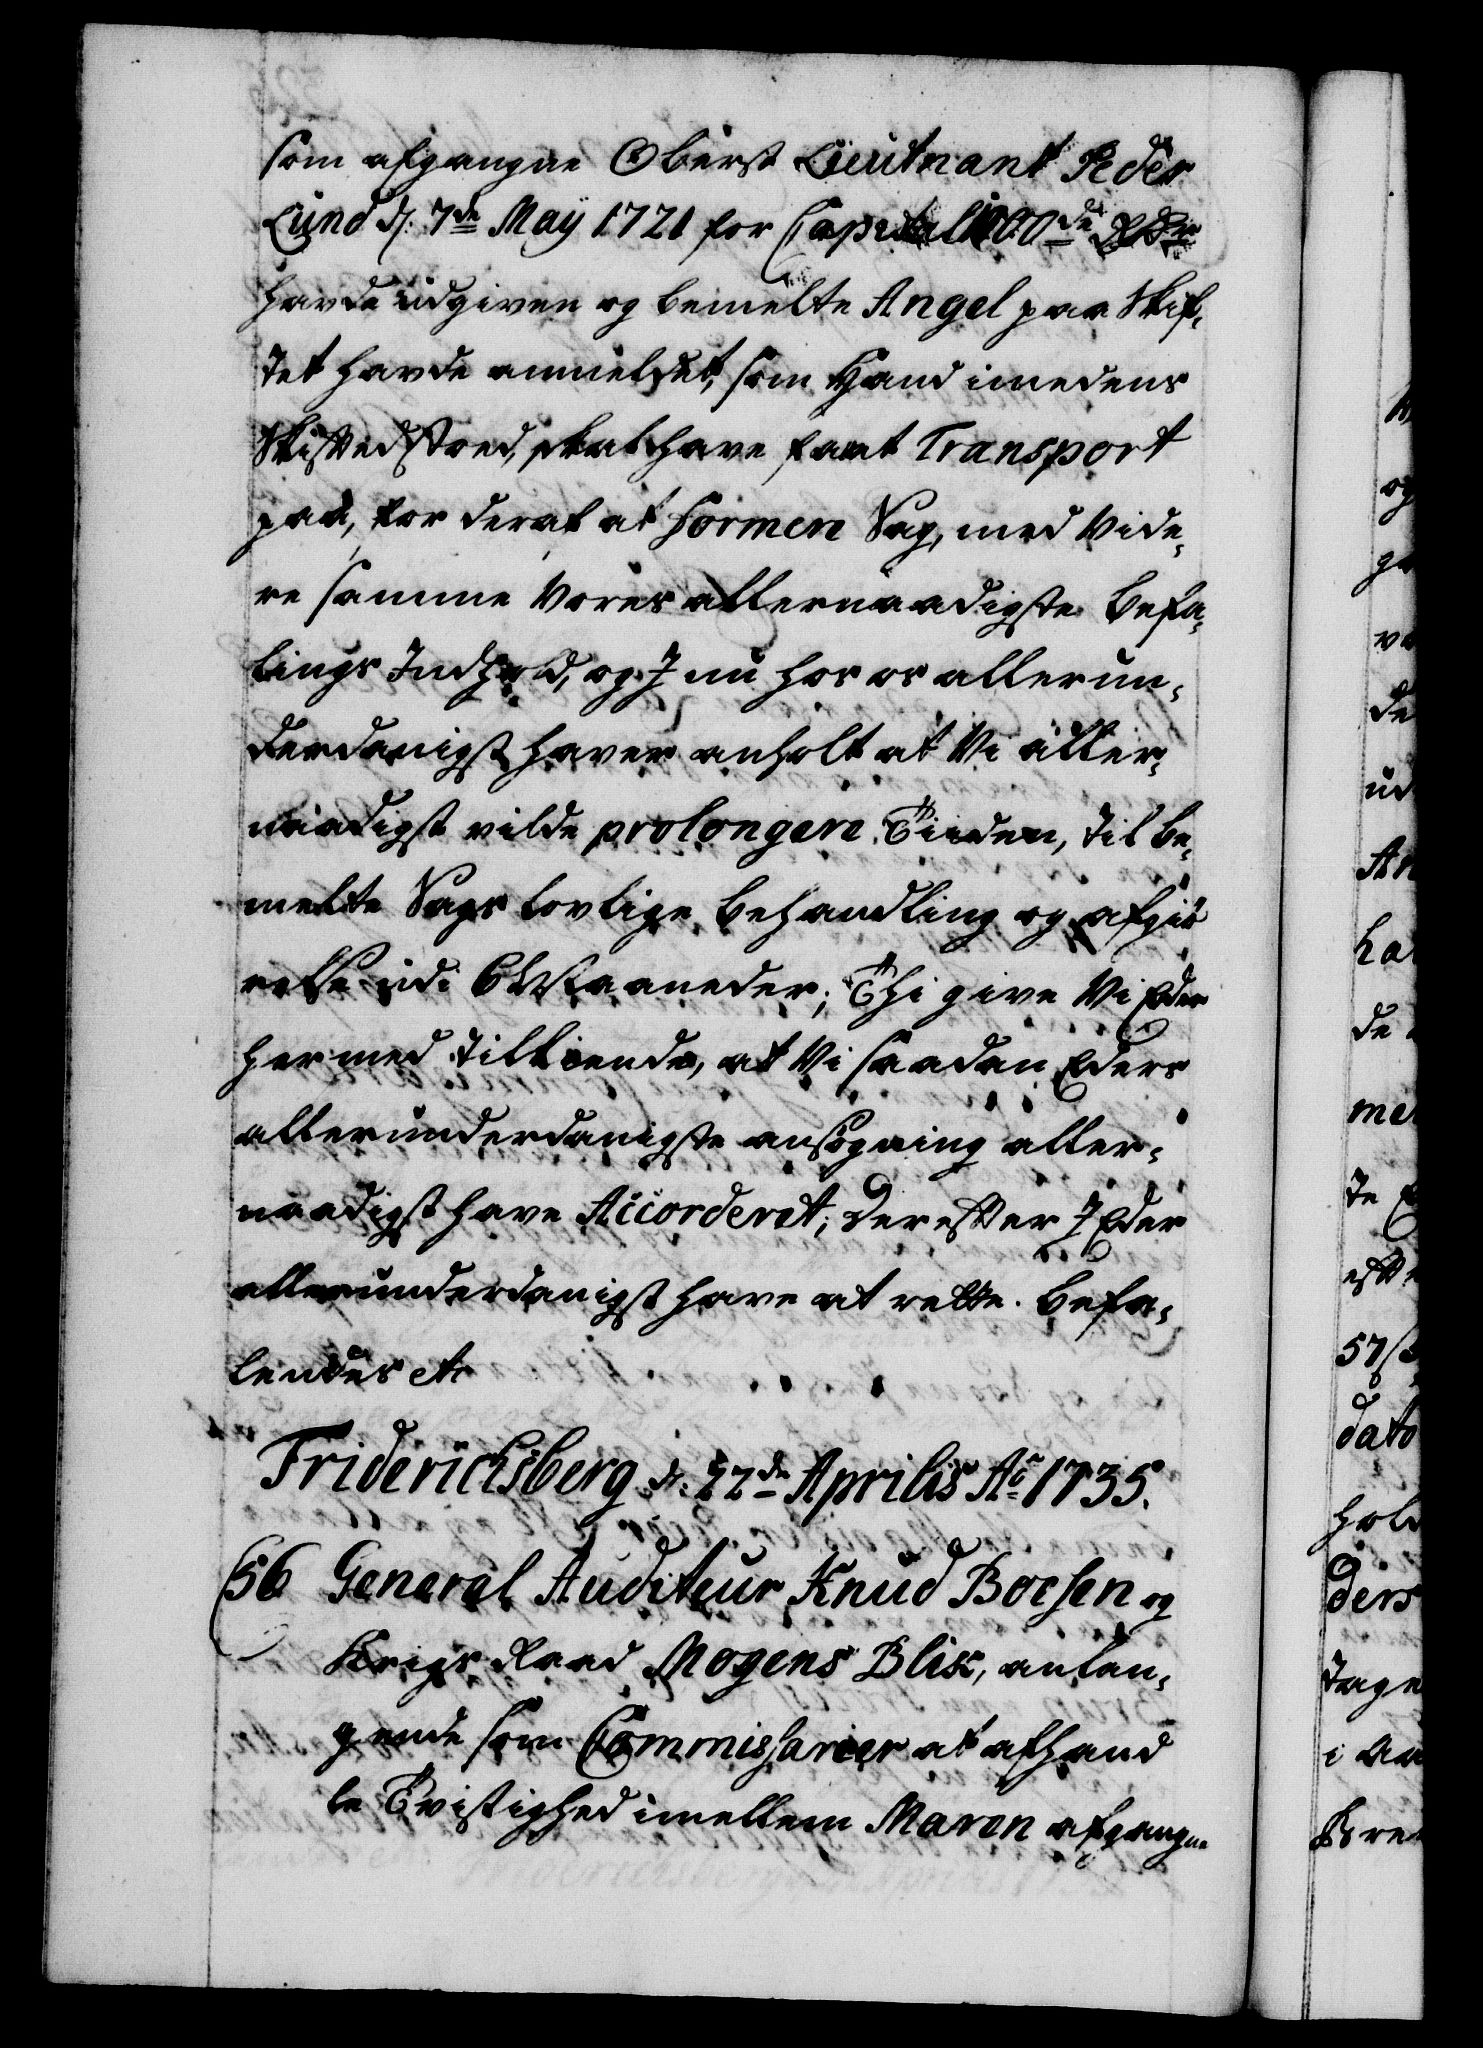 som afgangne Oberst Lieutnant Peder
Lund d. 7de May 1721 for Capital 1000de Rdr
havde udgiven og bemelte Angel paa Skif-
tet havde anmeldet, som Hand imedens
Skiftet stoed, skal have faaet Transport
paa, for deraf at formere Sag, med vide-
re samme Vores allernaadigste Befa-
lings Indhold, og I nu hos os allerun-
derdanigst haver anholt at Vi aller-
naadigst vilde prolongere Tiiden, til be-
melte Sags lovlige behandling og afgiø
relse udi 6 Maaneder; Thi give Vi Eder
hermed tilkiende, at Vi saadan Eders
allerunderdanigste ansøgning aller-
naadigst have Accorderet; derefter I Eder
allerunderdanigst have at rette. Befa-
lendes etc
Friderichsberg d. 22de Aprilis Ao 1735.
56 General Auditeur Knud Boesen og
Krigs Raad Mogens Blix, anlan-
gende som Commissarier at afhand
le Tvistighed imellem Maren afgangne
og
de
ud
An
ha
de
me
te
57
dato
hol
ders
tage
i